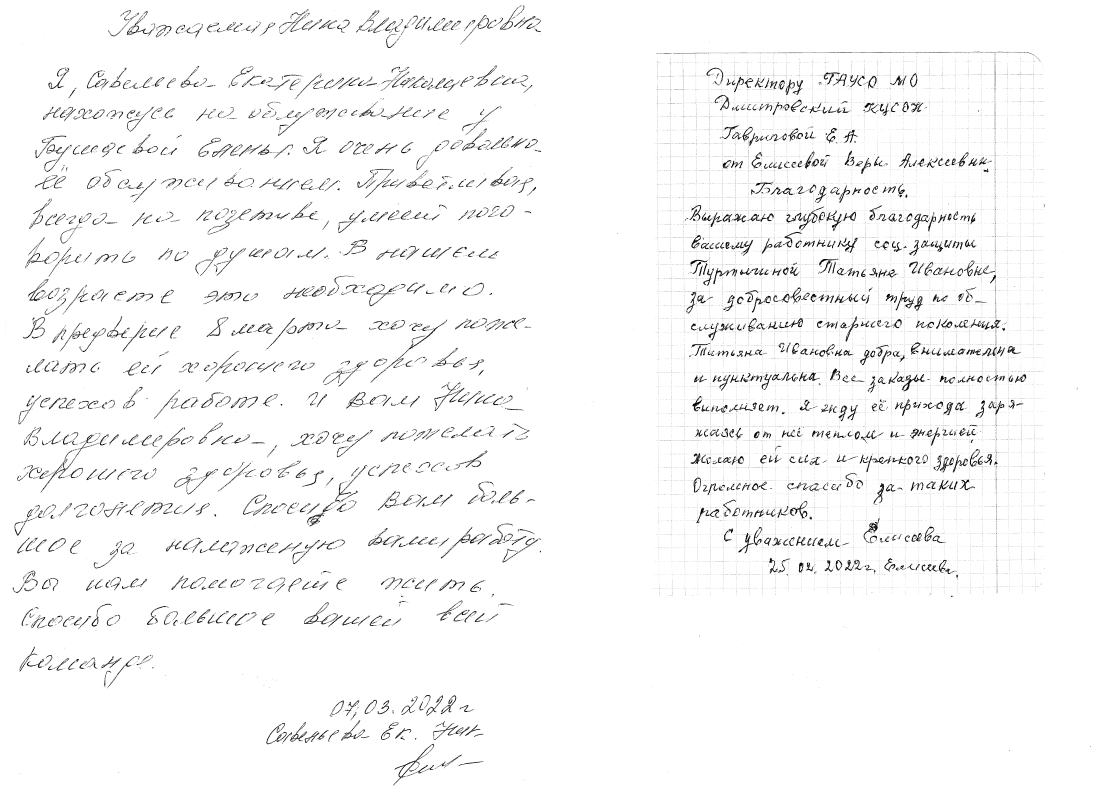 Уважаемая Нина Владимировна
Я, Савельева Екатерина Николаевна,
нахожусь на обслуживание у
Бушаевой Елены. Я очень довольна
её обслуживанием. Приветливая,
всегда на позетиве, умеет пого-
ворить по душам. В нашем
возрасте это необходимо.
В предверие 8 марта хочу поже-
лать ей хорошего здоровья,
успехов работе. И Вам Нина
Владимировна, хочу пожелать
хорошего здоровья, успехов
долголетия. Спасибо Вам боль-
шое за налаженую вами работу.
Вы нам помогаете жить.
Спасибо большое вашей всей
команде.
07,03.2022 г
Савельева Ек. Ник.
Директору ГАУСО МО
Дмитровский КЦСОН
Гавриговой Е. А.
от Елисеевой Веры Алексеевны
Благодарность.
Выражаю глубокую благодарность
вашему работнику соц. защиты
Туртыгиной Татьяне Ивановне,
за добросовестный труд по об-
служиванию старшего поколения.
Татьяна Ивановна добра, внимательна
и пунктуальна. Все заказы полностью
выполняет. Я жду её прихода заря-
жаясь от неё теплом и энергией.
Желаю ей сил и крепкого здоровья.
Огромное спасибо за таких
работников.
С уважением Елисеева
25.02.2022г. Елисеева.